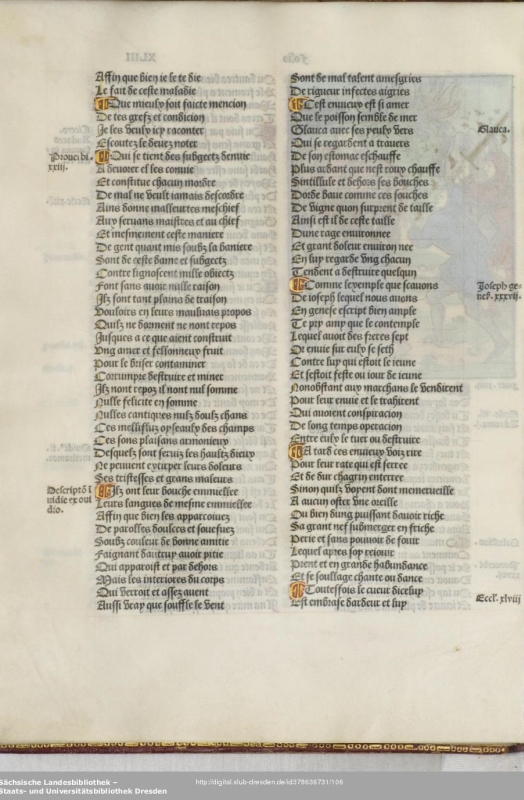 Affin que bien ie te die
Le fait de ceste maladie
Que mieulx soit faicte mencion
De tes grefz et condicion
Je les veulx icy raconter
Escoutez le devez noter
Qui se tient des subgectz denuie
A devorer el les conuie
Et constitue chacun mordre
De mal ne veult iamais desmordre
Ains donne malleurtes meschief
Aux servans maistres et au chief
Et mesmement ceste maniere
De gent quant mis soubz sa baniere
Sont de ceste dame et subgectz
Contre lignoscent mille obiectz
Font sans auoir nulle raison
Jlz sont tant plains de traison
Vouloirs en leurs mauluais propos
Quilz ne donnent ne nont repos
Jusques a ce que aient construit
Vng amer et fellonneux fruit
Pour le briser contaminer
Corrumpre destruire et miner
Jlz nont repoz il nont nul somme
Nulle felicite en somme
Nulles cantiques nulz doulx chans
Ces melliflux oyseaulx des champs
Ces sons plaisans armonieux
Desquelz sont seruiz les haultz dieux
Ne peuuent extirper leurs doleurs
Ses tristesses et grans maleurs
Jlz ont leur bouche emmiellee
Leurs langues de mesme emmiellee
Affin que bien les apparceuez
De parolles doulces et souefuez
Soubz couleur de bonne amitie
Faignant dautruy auoir pitie
Qui apparoist et par dehors
Mais les interiores du corps
Qui verroit et assez auent
Aussi vray que souffle le vent
Prouerbi.
xxiij.
Descriptō ī
uidie ex oui
dio.
Sont de mal talent amesgries
De rigueur infectes aigries
Cest enuieux est si amer
Que le poisson semble de mer
Glauca auec ses yeulx vers
Qui se regardent a trauers
De son estomac eschauffe
Plus ardant que nest roux chauffe
Sintillule et dehors ses bouches
Dorde baue comme ces souches
De vigne quon surprent de taille
Ainsi est il de ceste taille
Dune rage enuironnee
Et grant doleur enuiron nee
En luy regarde vng chacun
Tendent a destruire quelqun
Comme lexemple que scauons
De ioseph lequel nous auons
En genese escript bien ample
Te pry amy que le contemple
Lequel auoit des freres sept
Or enuie fut eulx se seth
Contre luy qui estoit le ieune
Et sestoit feste ou iour de ieune
Nonobstant aux marchans le vendirent
Pour leur enuie et le trahirent
Qui auoient conspiracion
De long temps operacion
Entre eulx le tuer ou destruire
A tard ces enuieux voiz rire
Pour leur rate qui est serree
Et de dur chagrin enterree
Sinon quilz voyent dont memerueille
A aucun oster vne oreille
Ou bien dung puissant dauoir riche
Sa grant nef submerger en friche
Perie et sans pouuoir de fouir
Lequel apres soy reiouir
Prent et en grande habundance
Et se soullage chante ou dance
Touteffois le cueur dicelluy
Est embrase dardeur et luy
Glauca.
Joseph ge-
nes. xxxvij.
Eccl. xlviij
Sächsische Landesbibliothek –
Staats- und Universitätsbibliothek Dresden
http://digital.slub-dresden.de/id378636731/106